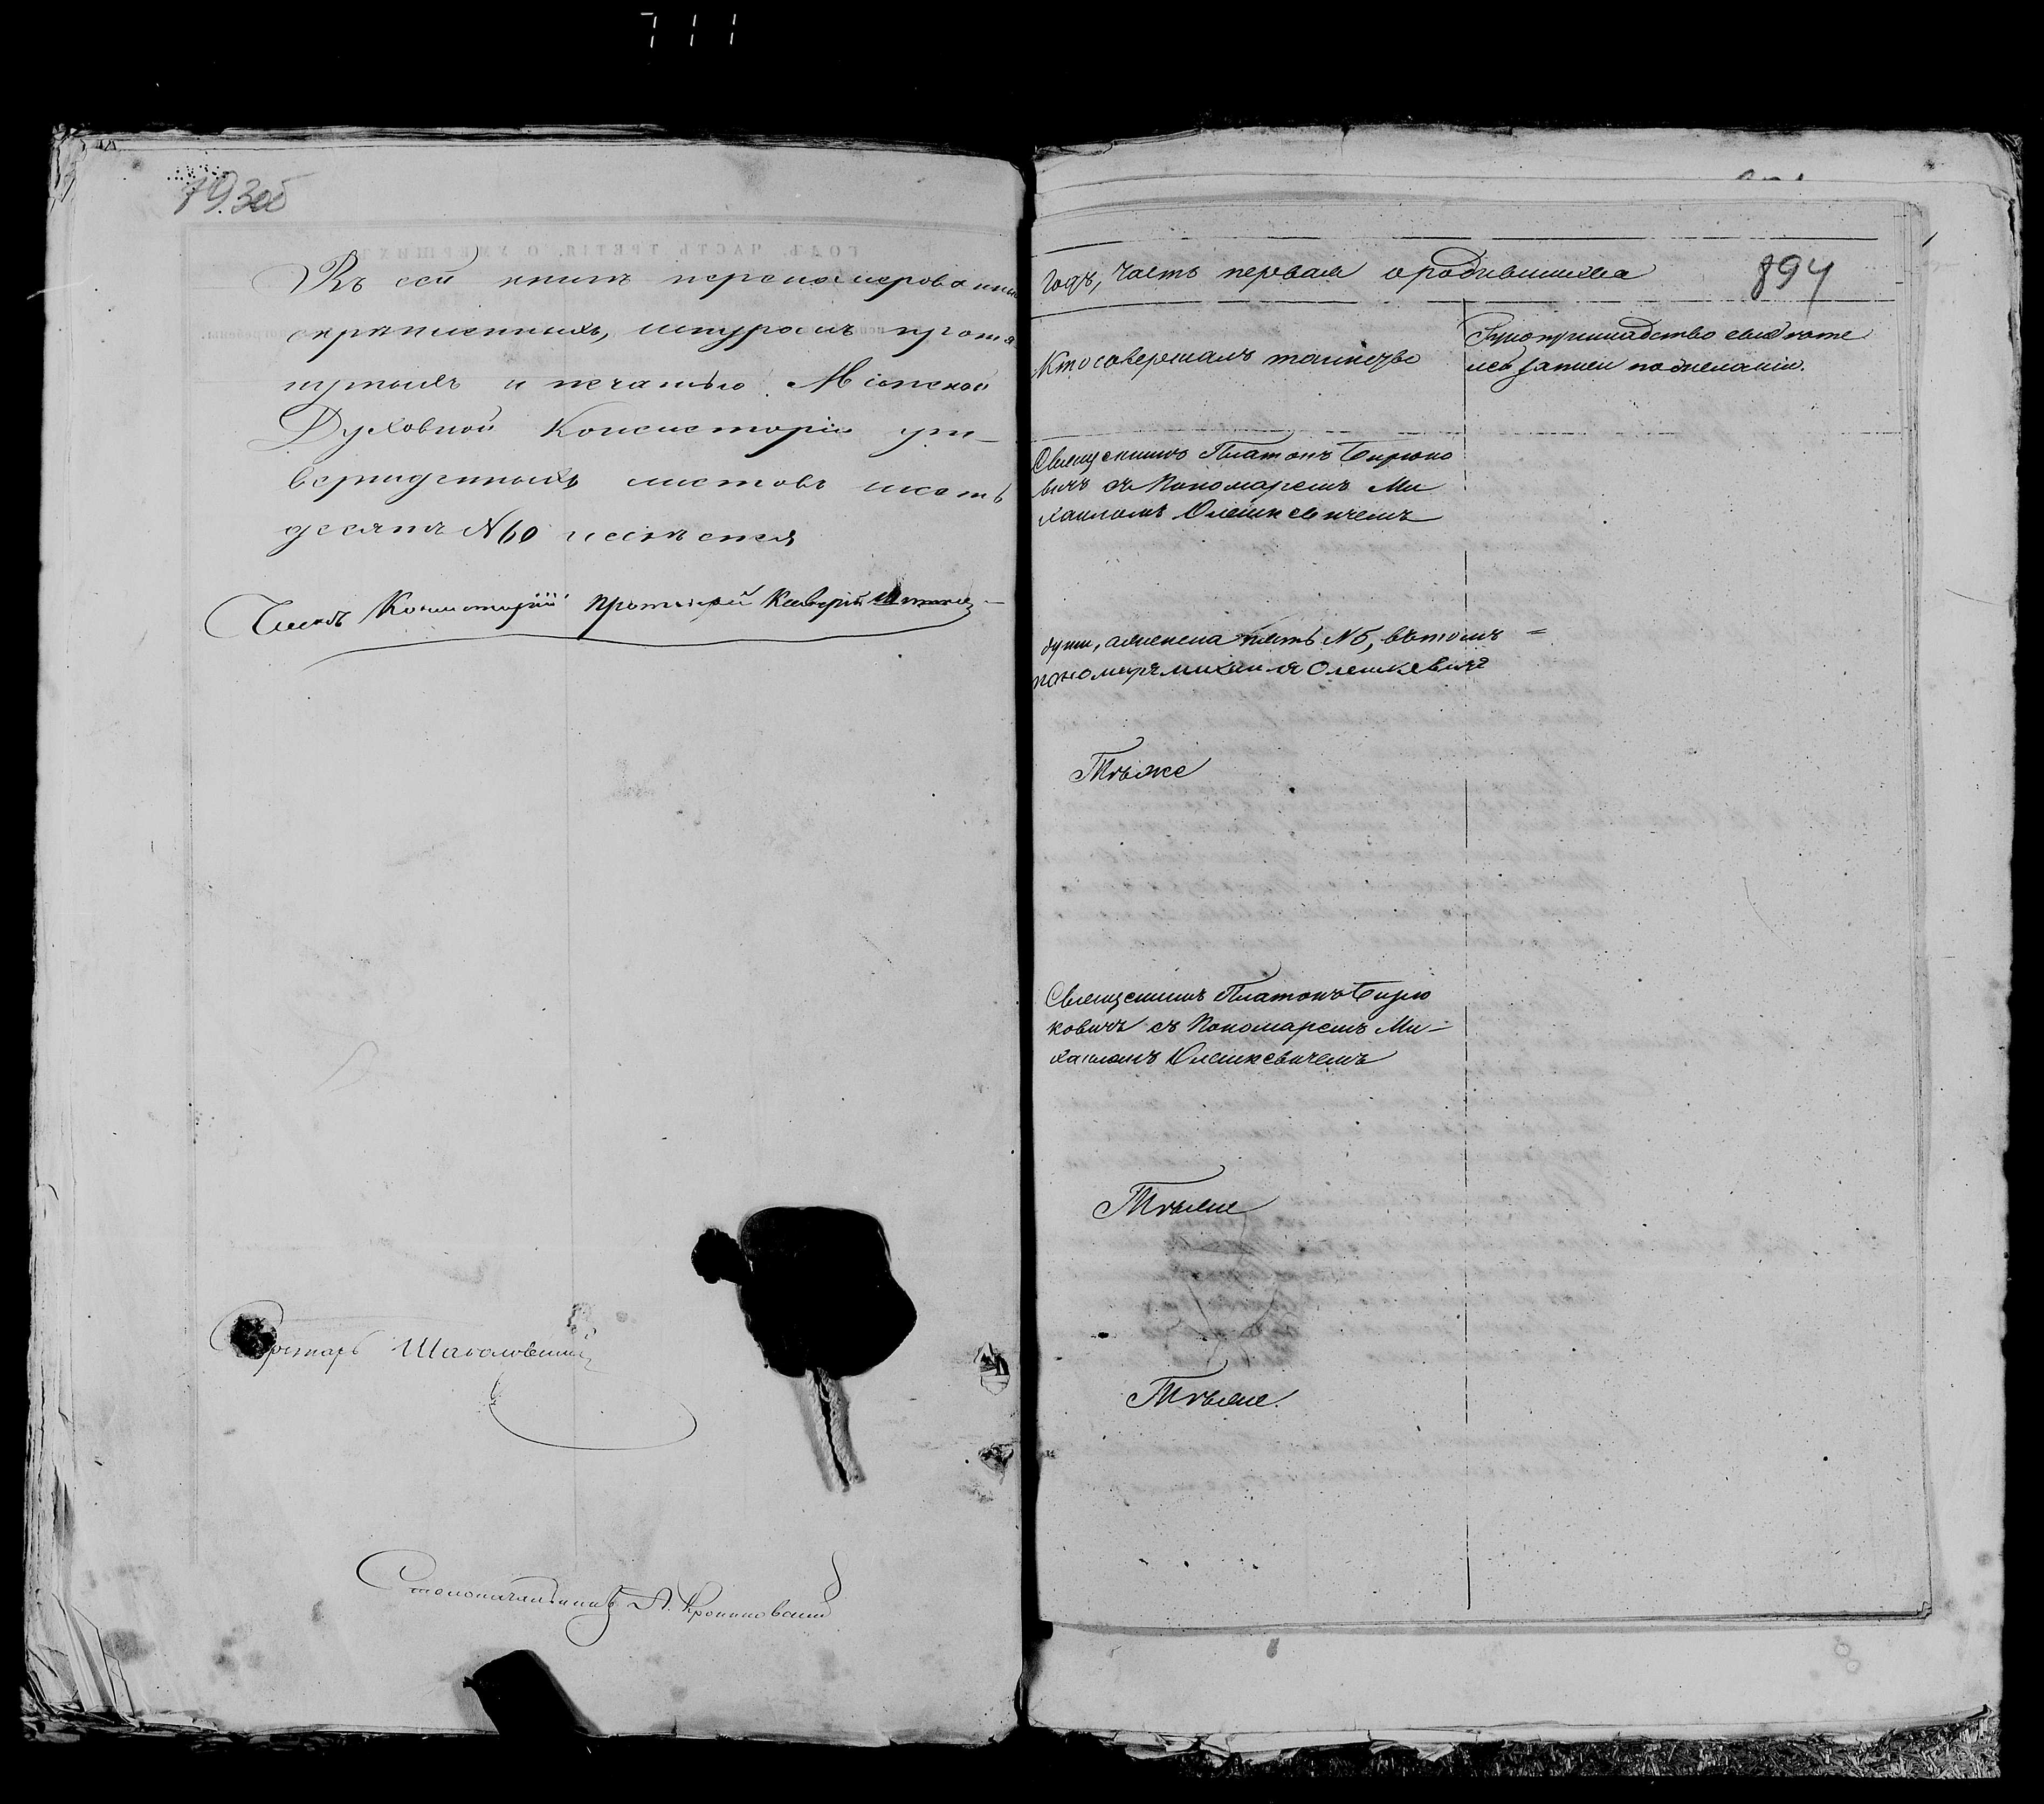 711
79.3об
Въ сей книгѣ перенумерованныхъ
скрѣпленныхъ, шнуромъ протя
нутыхъ и печатью Минской
Духовной Консисторіи ут-
вержденныхъ листовъ шесть
десятъ N 60 имѣется
Членъ Консисторіи протоіерей Ксаверій
Секретарь
Столоначальникъ А.
894
Годъ, часть первая о родившихся
Кто совершалъ таинство
Рукоприкладство свидѣте
лей записи по желанію.
Священникъ Платонъ Бирюко
вичъ съ Пономаремъ Ми
хаиломъ Олешкевичемъ
души, а женска пять N 5, въ томъ =
пономарь михаилъ Олешкевичъ
Тѣже
Священникъ Платонъ Бирю
ковичъ съ Пономаремъ Ми-
хаиломъ Олешкевичемъ
Тѣже
Тѣже.